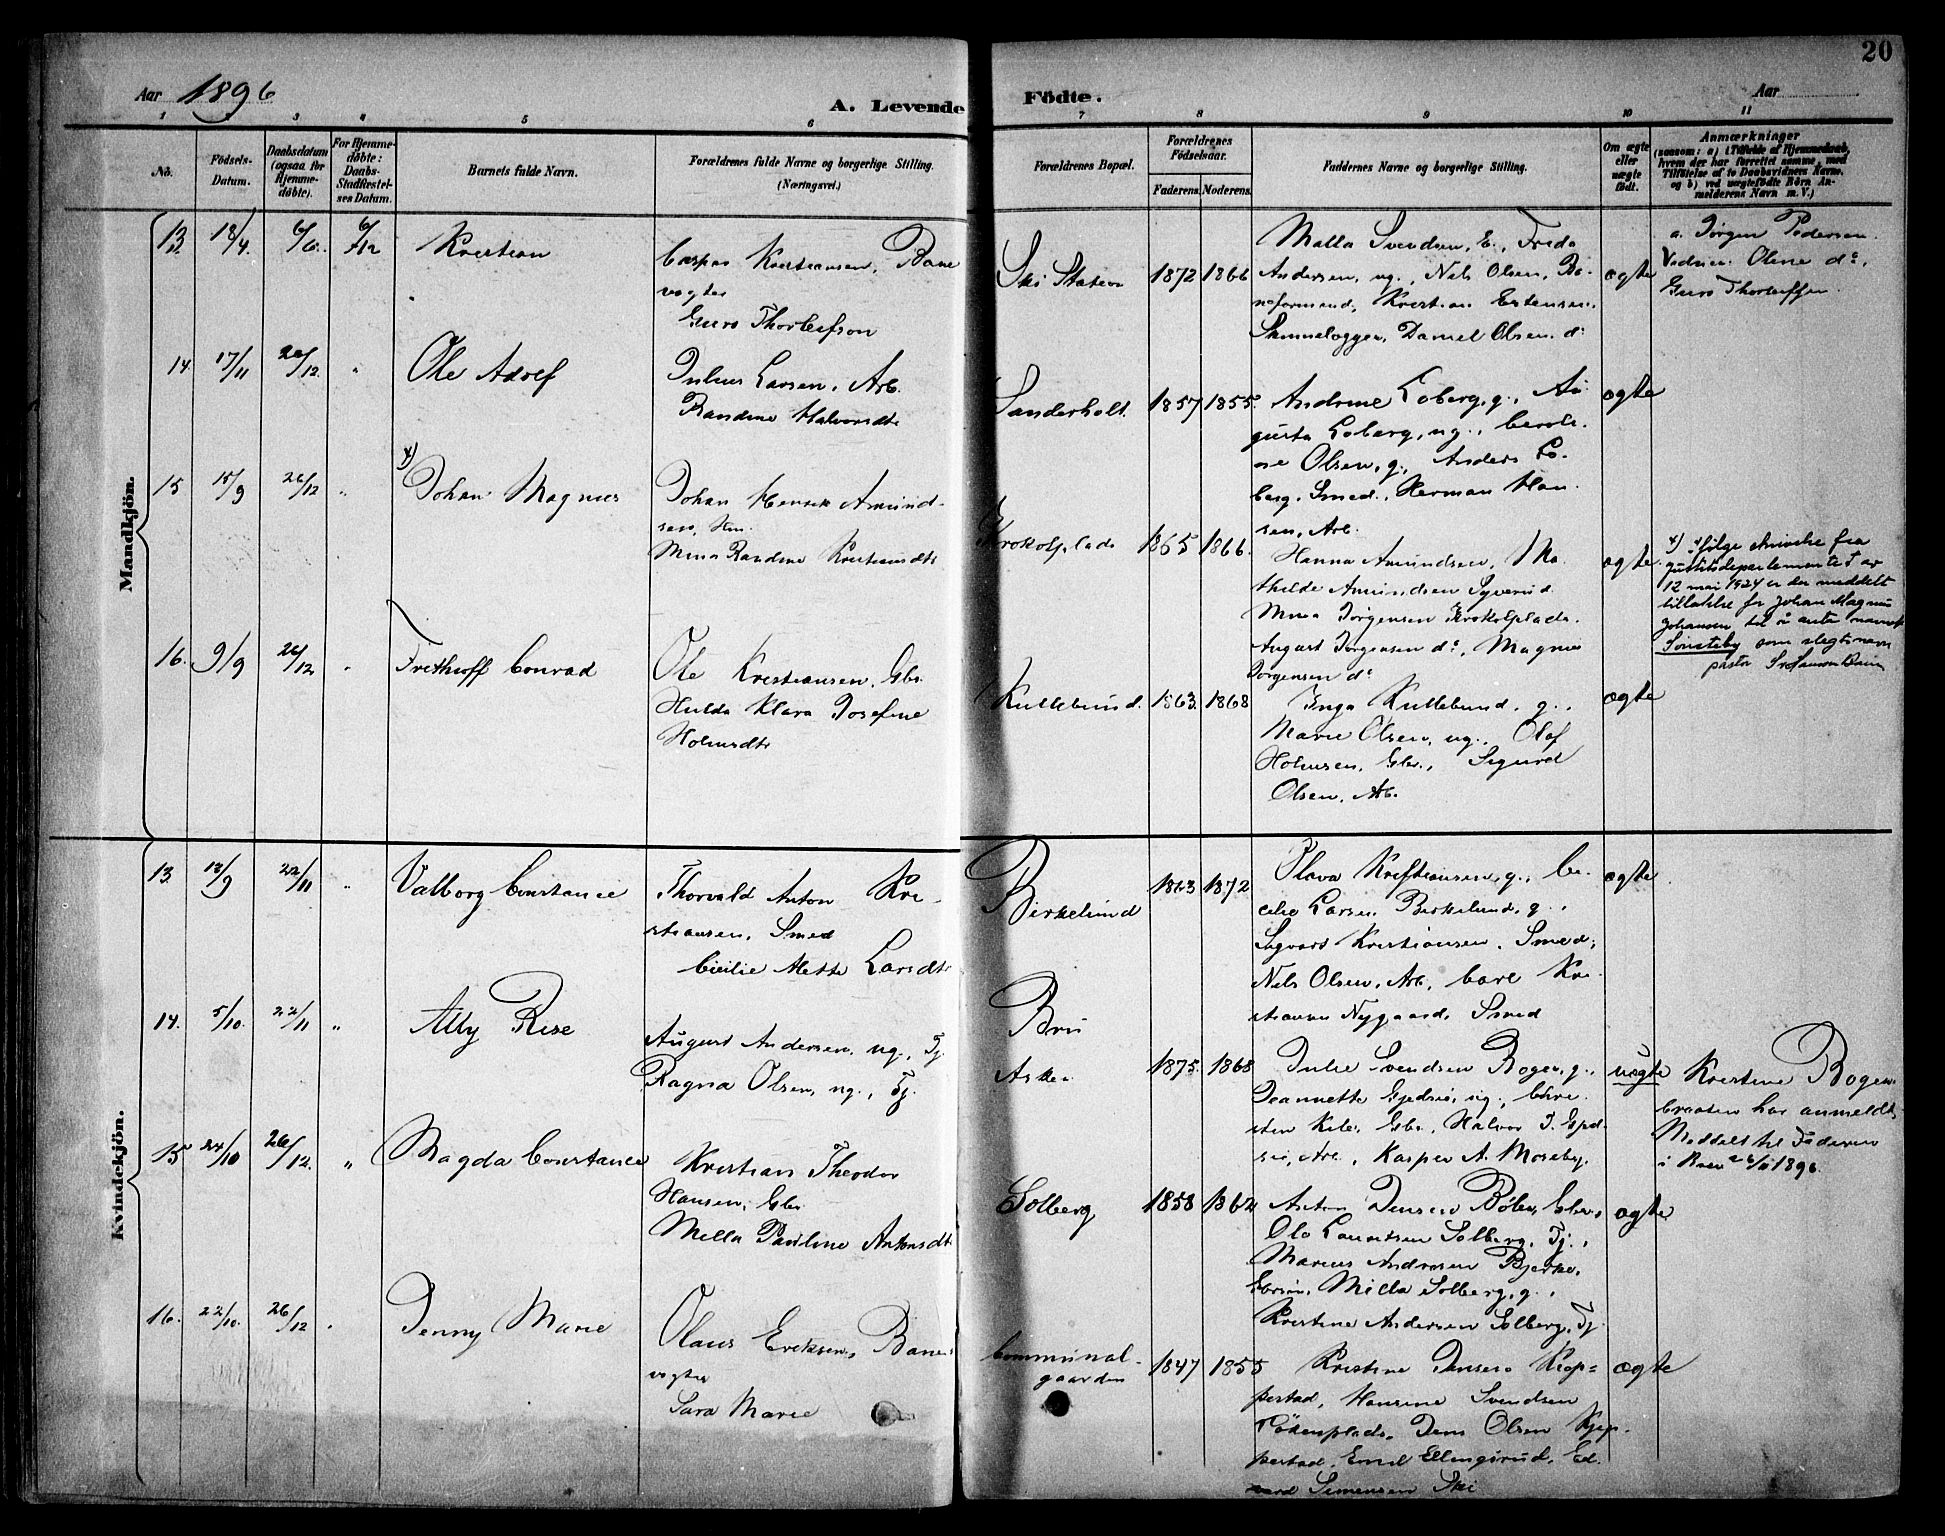 20
Aar 1896
A. Levende Födte.
Aar
1 2 3 4 5 6 7 8 9 10 11
No.
Födsels-
Datum.
Daabsdatum
(ogsaa for
Hjemme-
döbte).
For Hjemme-
döbte:
Daabs-
Stadfæstel-
ses Datum.
Barnets fulde Navn.
Forældrenes fulde Navne og borgerlige Stilling.
(Næringsvei.)
Forældrenes Bopæl.
Forældrenes
Födselsaar.
Faderens. Moderens.
Faddernes Navne og borgerlige Stilling.
Om ægte
eller
uægte
födt.
Anmærkninger
(saasom: a) i Tilfælde af Hjemmedaab,
hvem der har forrettet samme, med
Tilföielse af to Daabsvidners Navne,
og b) ved uægtefödte Börn An-
melderens Navn m. V.)
Mandkjön.
13. 18/4 6/6. 6/12 Kristian
Caspar Kristiansen, Bane
vogter
Guro Thorleifson
Ski Station 1872 1866
Malla Svendsen, E., Frida
Andersen, ug., Nils Olsen, Ba-
neformand, Kristian Estensen,
Skinnelægger, Daniel Olsen, do
ægte
a. Jörgen Pedersen
Vidner: Oline do,
Guro Thorleifsen.
14. 17/11 26/12. " Ole Adolf
Julius Larsen, Arb.
Randine Halvorsdtr
Sanderholt. 1857 1855.
Andrine Loberg, g., Au
gusta Loberg, ug., Carol-
ine Olsen, g., Anders Lo-
berg, Smed, Herman Han
sen, Arb.
ægte
15 15/9 26/12 " x) Johan Magnus
Johan Henrik Amund-
sen, Hm.
Mina Randine Kristiansdtr
Krokolplads 1865 1866.
Hanna Amundsen, Ma
thilde Amundsen Syverud
Mina Jörgensen Krokolplads.
August Jörgensen do, Magnus
Jörgensen do
ægte.
x) Ifølge skrivelse fra
justitsdepartementet av
12 mai 1924 er der meddelt
tillatelse for Johan Magnus
Johansen til å anta navnet
Sönsteby som slegtsnavn
pastor
16. 9/9 26/12 " Frithioff Conrad
Ole Kristiansen, Gbr.
Hulda Klara Josefine
Holmsdtr
Kullebund. 1863. 1868
Inga Kullebund, g.,
Marie Olsen, ug., Olof
Holmsen, Gbr., Sigurd
Olsen, Arb.
ægte
Kvindekjön.
13. 13/9 22/11 " Valborg Constance
Thorvald Anton Kri-
stiansen, Smed
Cecilie Mette Larsdtr
Birkelund 1863 1872
Olava Kristiansen, g., Ce-
cilie Larsen Birkelund, g.,
Sigvart Kristiansen, Smed,
Nils Olsen, Arb, Carl Kri-
stiansen Nygaard, Smed
ægte
14. 5/10. 22/11 " Ally Rise
August Andersen, ug., Tj.
Ragna Olsen, ug., Tj.
Bru
Asker 1875. 1868
Julie Svendsen Bogen, g.,
Jeannette Gjedsie, ug., Chri-
sten Gbr, Halvor J. Gjed
sie, Arb., Kasper A. Moseby.
uægte
Kristine Bogen-
braaten har anmeldt.
Meddelt til Faderen
i Brev 26/11 1896.
15 24/10 26/12. " Magda Constance
Kristian Theodor
Hansen, Gbr
Milla Pauline Antonsdtr
Solberg 1858 1862
Anton Jensen Gbr.,
Ole Lauritsen Solberg, Tj.,
Marius Andresen Bjerke,
Milla Solberg, g.,
Kristine Andersen Solberg, Tj
ægte
16. 22/10. 26/12 . Jenny Marie
Olaus Eriksen, Bane-
vogter
Sara Marie
Communal-
gaarden 1847 1855
Kristine Jensen Kjep-
pestad, Hansine Svendsen
Jens Olsen Kjep-
pestad, Emil Ellingsrud, Ed-
vard Simensen Ski
ægte